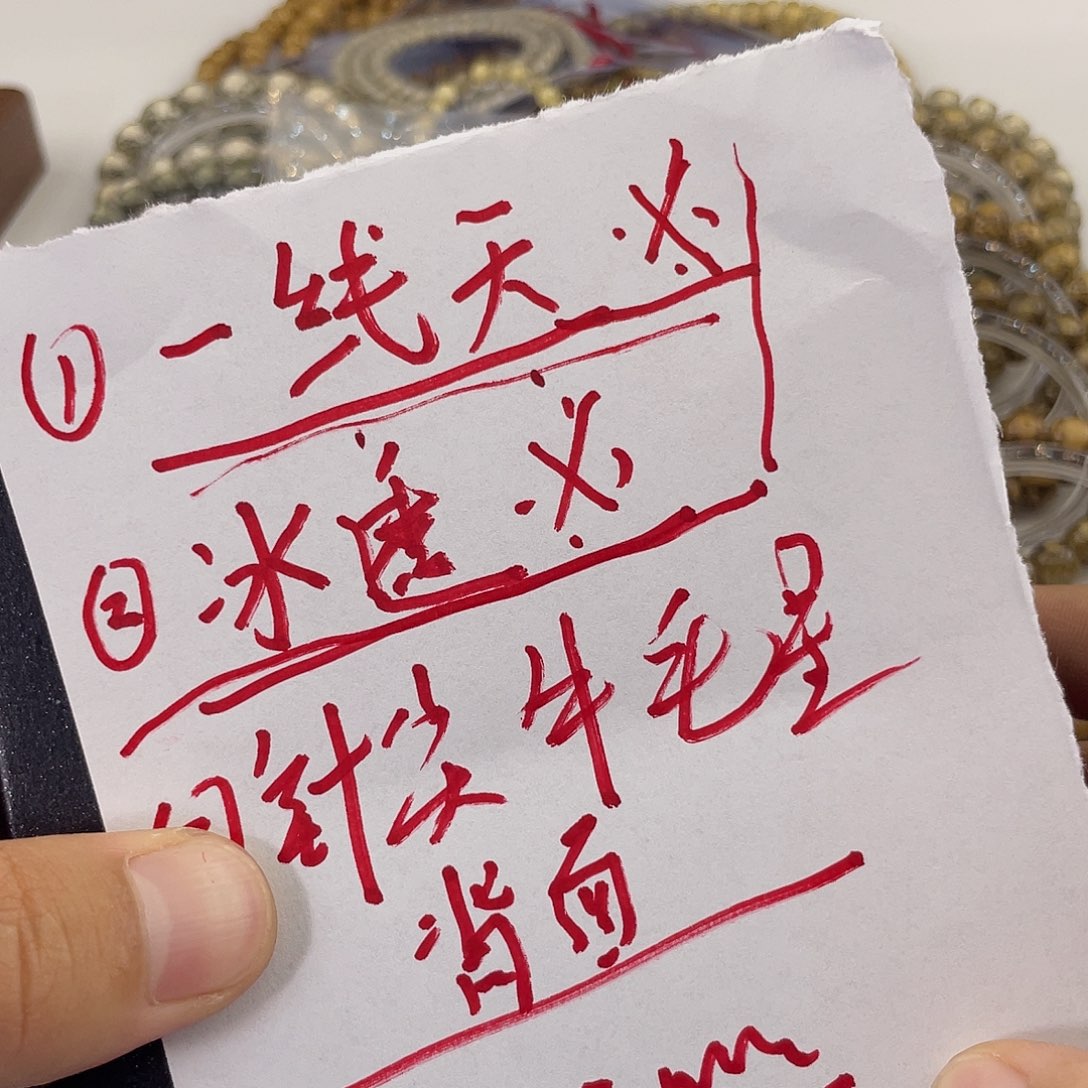 ① 一线天 ※
② 冰透 ※
针尖牛毛星
背面